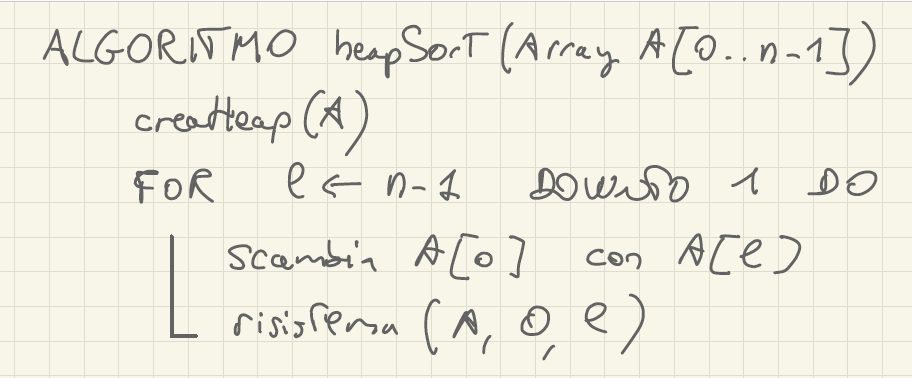 ALGORITMO heapSort(Array A[0..n-1])
creaHeap(A)
FOR l ← n-1 DOWNTO 1 DO
scambia A[0] con A[l]
risistema (A, 0, l)